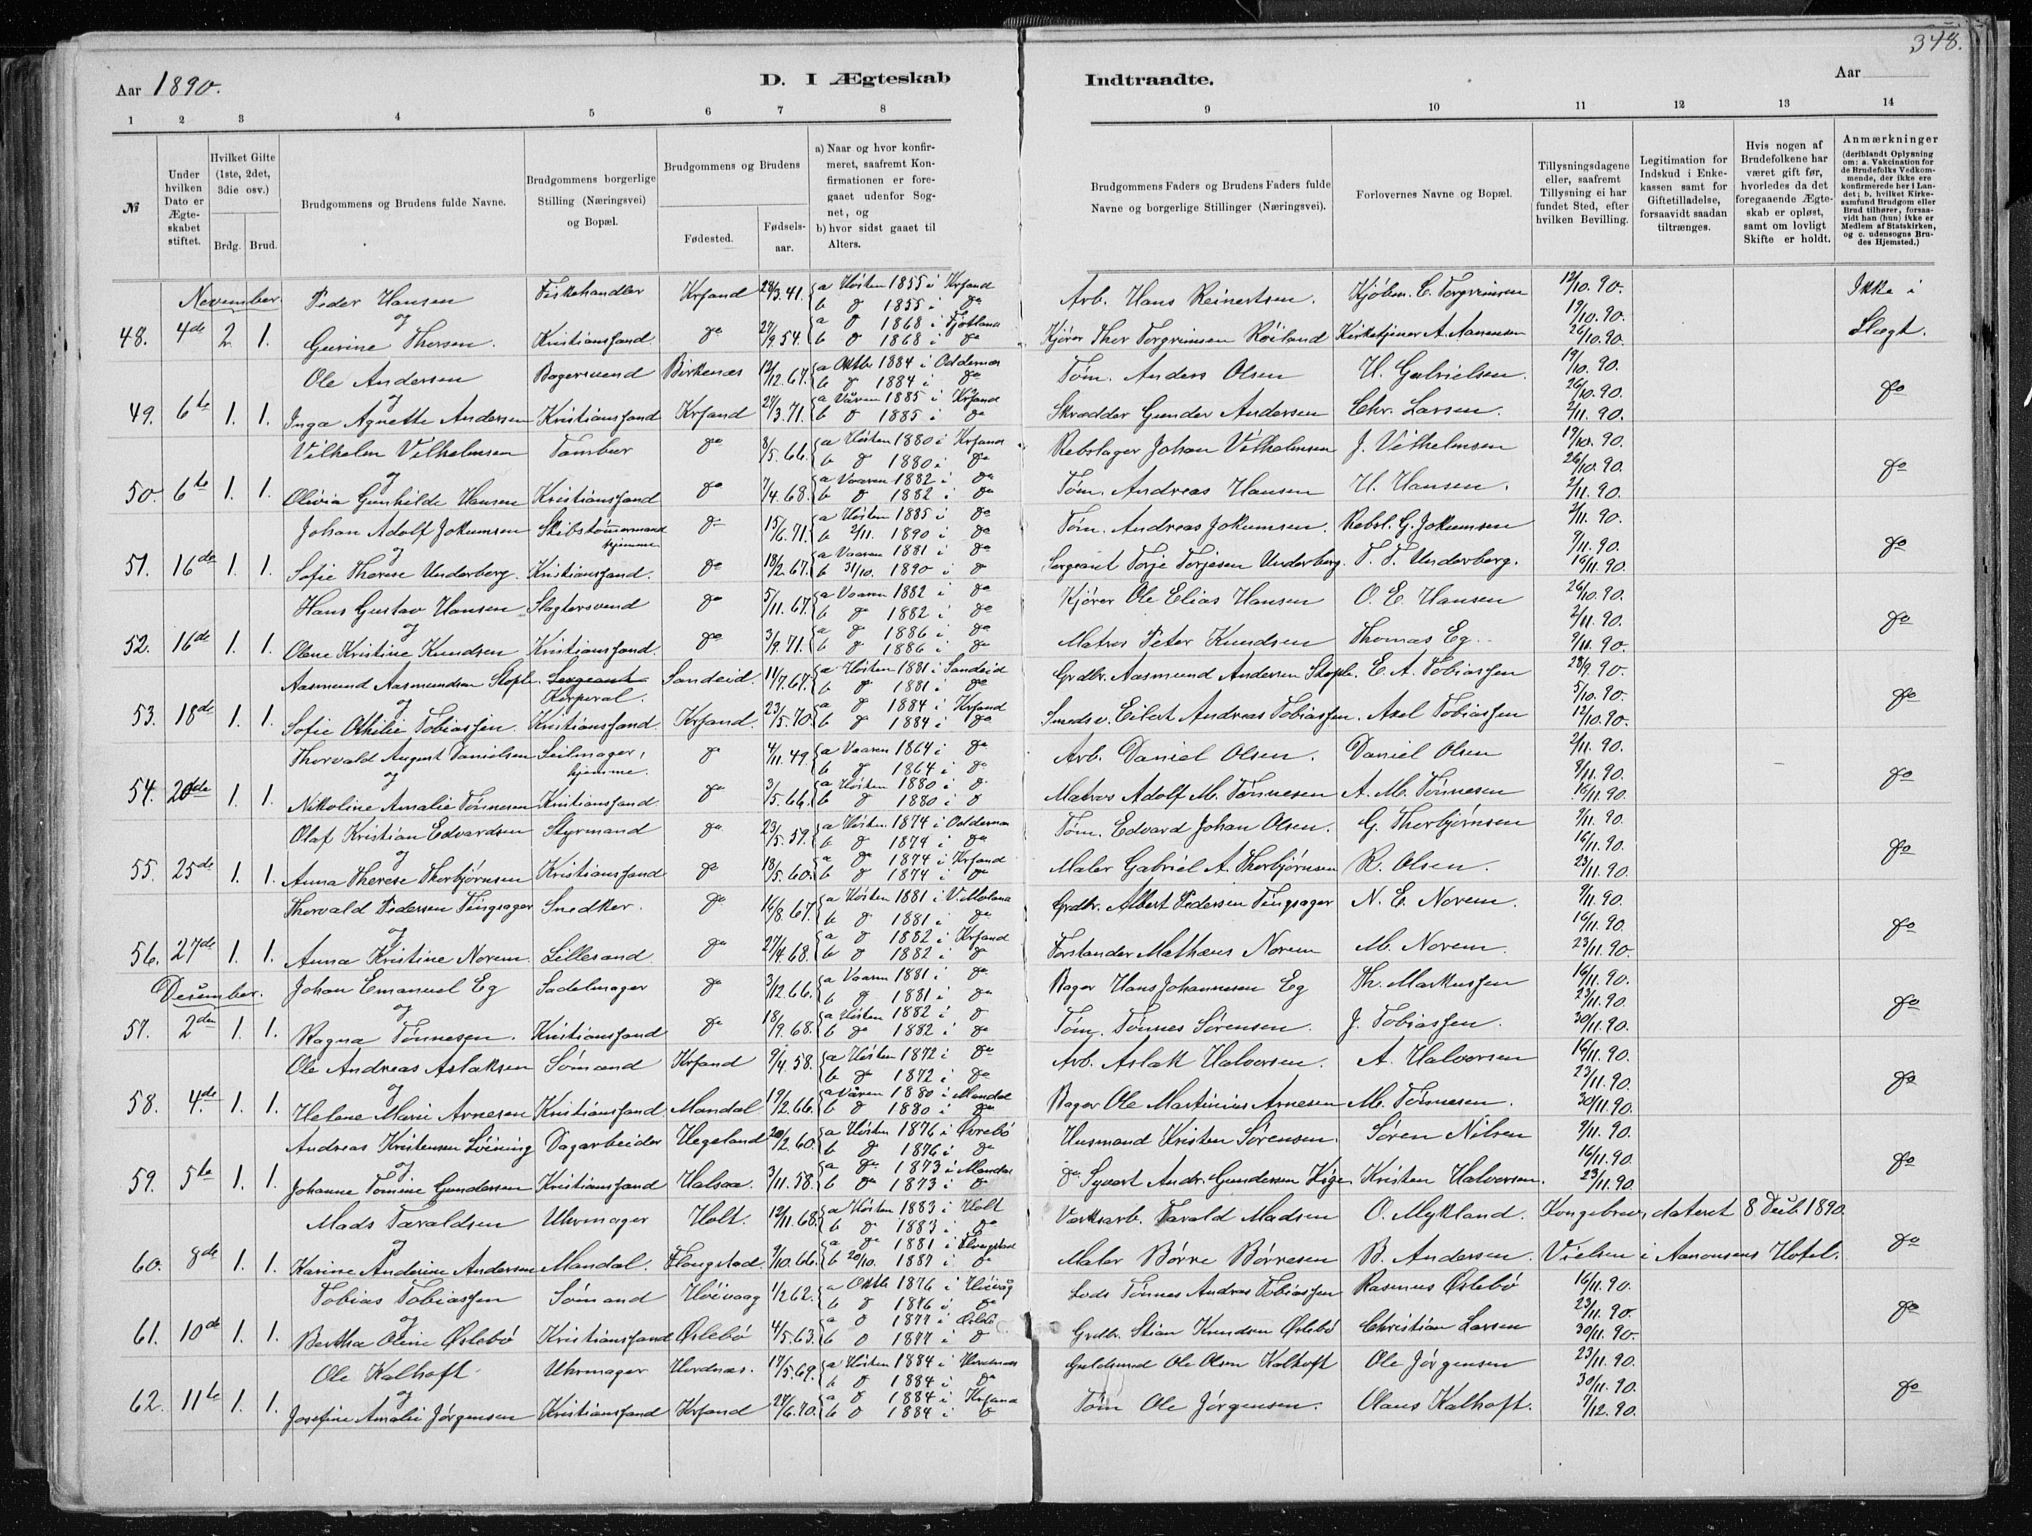 348.
Aar 1890.
D. I Ægteskab
Indtraadte.
Aar
1 2 3 4 5 6 7 8 9 10 11 12 13 14
№
Under hvilken Dato er Ægteskabet stiftet.
Hvilket Gifte (1ste, 2det, 3die osv.)
Brdg. Brud.
Brudgommens og Brudens fulde Navne.
Brudgommens borgerlige Stilling (Næringsvei) og Bopæl.
Brudgommens og Brudens
Fødested. Fødselsaar.
a) Naar og hvor konfirmeret, saafremt Konfirmationen er foregaaet udenfor Sognet, og
b) hvor sidst gaaet til Alters.
Brudgommens Faders og Brudens Faders fulde Navne og borgerlige Stillinger (Næringsvei).
Forlovernes Navne og Bopæl.
Tillysningsdagene eller, saafremt Tillysning ei har fundet Sted, efter hvilken Bevilling.
Legitimation for Indskud i Enkekassen samt for Giftetilladelse, forsaavidt saadan tiltrænges.
Hvis nogen af Brudefolkene har været gift før, hvorledes da det foregaaende Ægteskab er opløst, samt om lovligt Skifte er holdt.
Anmærkninger (deriblandt Oplysning om: a. Vakcination for de Brudefolks Vedkommende, der ikke ere konfirmerede her i Landet; b. hvilket Kirkesamfund Brudgom eller Brud tilhører, forsaavidt han (hun) ikke er Medlem af Statskirken, og c. udensogns Brudes Hjemsted.)
November. Peder Hansen Fiskehandler Krsand 28/3.41. a Høsten 1855 i Krsand b do 1855 i do Arb. Hans Reinertsen Kjøbm. C. Torgrimsen 12/10.90. Ikke i
48. 4de 2. 1. og Gurine Thorsen. Kristianssand do 27/9.54. a do 1868 i Fjotland b do 1868 i do Kjører Thor Torgrimsen Røiland Kirketjener A. Aanensen 19/10.90. 26/10.90. Slægt.
Ole Andersen Bagersvend Birkenæs 12/12.67. a Oktbr 1884 i Oddernæs b do 1884 i do Tøm. Anders Olsen H. Gabrielsen. 19/10.90.
49. 6te 1. 1. og Inga Agnette Andersen Kristianssand Krsand 27/3.71. a Våren 1885 i Krsand b do 1885 i do Skrædder Gunder Andersen Chr. Larsen. 26/10.90. 2/11.90. do
Vilhelm Vilhelmsen Tambur do 8/5.66. a Høsten 1880 i Krsand b do 1880 i do Rebslager Johan Vilhelmsen J. Vilhelmsen 19/10.90.
50. 6te 1. 1. og Olivia Gunhilde Hansen Kristianssand do 7/4.68. a Vaaren 1882 i do b do 1882 i do Tøm. Andreas Hansen H. Hansen. 26/10.90. 2/11.90. do
Johan Adolf Jokumsen Skibstømmermand hjemme do 15/6.71. a Høsten 1885 i do b 2/11. 1890 i do Tøm. Andreas Jokumsen. Rebsl. G. Jokumsen 2/11.90.
51. 16de 1. 1. og Sofie Therese Underberg. Kristianssand. do 18/2.67. a Vaaren 1881 i do b 31/10. 1890 i do Sergeant Torje Torjesen Underberg. T. T. Underberg. 9/11.90. 16/11.90. do
Hans Gustav Hansen Slagtersvend do 5/11.67. a Vaaren 1882 i do b do 1882 i do Kjører Ole Elias Hansen O. E. Hansen 26/10.90.
52. 16de 1. 1. og Olene Kristine Knudsen Kristianssand. do 3/9.71. a do 1886 i do b do 1886 i do Matros Peter Knudsen Thomas Eg. 2/11.90. 9/11.90. do
Aasmund Aasmundsen Stople. Sergeant Korporal. Sandeid. 11/7.67. a Høsten 1881 i Sandeid b do 1881 i do Grdbr. Aasmund Andersen Stople. E. A. Tobiassen 28/9.90.
53. 18de 1. 1. og Sofie Othilie Tobiassen Kristianssand. Krsand. 23/5.70. a do 1884 i Krsand b do 1884 i do Smedsv. Eilert Andreas Tobiassen. Axel Tobiassen 5/10.90. 12/10.90. do
Thorvald August Danielsen Seilmager, hjemme. do 4/11.49. a Vaaren 1864 i do b do 1864 i do Arb. Daniel Olsen. Daniel Olsen 2/11.90.
54. 20de 1. 1. og Nikoline Amalie Tønnesen Kristianssand. do 3/5.66. a Høsten 1880 i do b do 1880 i do Matros Adolf M. Tønnesen A. M. Tønnesen 9/11.90. 16/11.90. do
Olaf Kristian Edvardsen Styrmand do 23/5.59. a Høsten 1874 i Oddernæs b do 1874 i do Tøm. Edvard Johan Olsen. G. Thorbjørnsen 9/11.90.
55. 25de 1. 1. og Anna Therese Thorbjørnsen Kristianssand do 18/5.60. a do 1874 i Krsand b do 1874 i do Maler Gabriel A. Thorbjørnsen R. Olsen. 16/11.90. 23/11.90. do
Thorvald Pedersen Tingsager Snedker. do 16/8.67. a Høsten 1881 i V. Moland b do 1881 i do Grdbr. Albert Pedersen Tingsager N. E. Norem. 9/11.90.
56. 27de 1. 1. og Anna Kristine Norem. Lillesand. do 27/4.68. a do 1882 i Krsand b do 1882 i do Forstander Mathæus Norem M. Norem. 16/11.90. 23/11.90. do
Desember. Johan Emanuel Eg Sadelmager do 3/12.66. a Vaaren 1881 i do b do 1881 i do Bager Hans Johannesen Eg Th. Markussen 16/11.90.
57. 2den 1. 1. og Ragna Tønnesen. Kristianssand do 18/9.68. a Høsten 1882 i do b do 1882 i do Tøm. Tønnes Sørensen. J. Tobiassen. 23/11.90. 30/11.90. do
Ole Andreas Aslaksen Sømand Krsand 9/4.58. a Høsten 1872 i do b do 1872 i do Arb. Aslak Halvorsen. A. Halvorsen 16/11.90.
58. 4de. 1. 1. og Helene Marie Arnesen Kristianssand Mandal 19/2.66. a Våren 1880 i Mandal b do 1880 i do Bager Ole Martinius Arnesen M. Tønnesen. 23/11.90. 30/11.90. do
Andreas Kristensen Løining Dagarbeider Hegeland 20/2.60. a Høsten 1876 i Øvrebø b do 1876 i do Husmand Kristen Sørensen. Søren Nilsen 9/11.90.
59. 5te 1. 1. og Johanne Tomine Gundersen Kristianssand Halsaa. 3/11.58. a do 1873 i Mandal b do 1873 i do do Syvert Andr. Gundersen Kige. Kristen Halvorsen. 16/11.90. 23/11.90. do
Mads Taraldsen Uhrmager Holt. 12/11.68. a Høsten 1883 i Holt b do 1883 i do Værksarb. Tarald Madsen O. Mykland. Kongebrev, dateret 8 Decb. 1890.
60. 8de 1. 1. og Karine Andrine Andersen Mandal. Flongstad. 9/10.66. a do 1881 i Flongstad b 20/10. 1887 i do Maler Børre Børresen B. Andersen. Vielsen i Aanonsens Hotel. do
Tobias Tobiassen Sømand Høivaag 1/2.62. a Oktbr 1876 i Høivåg b do 1876 i do Lods Tønnes Andreas Tobiassen Rasmus Øslebø 16/11.90.
61. 10de 1. 1. og Bertha Oline Øslebø Kristianssand Øslebø 4/5.63. a do 1877 i Øslebø b do 1877 i do Grdbr. Stian Knudsen Øslebø Christian Larsen 23/11.90. 30/11.90. do
Ole Kalhoft. Uhrmager Herdnæs. 17/5.69. a Høsten 1884 i b do 1884 i do Guldsmed Ole Olsen Kalhoft Ole Jørgensen 23/11.90.
62. 11te 1. 1. og Josefine Amalie Jørgensen Kristianssand Krsand 27/6.70. a do 1884 i Krsand b do 1884 i do Tøm Ole Jørgensen. Olaus Kalhoft. 30/11.90. 7/12.90. do